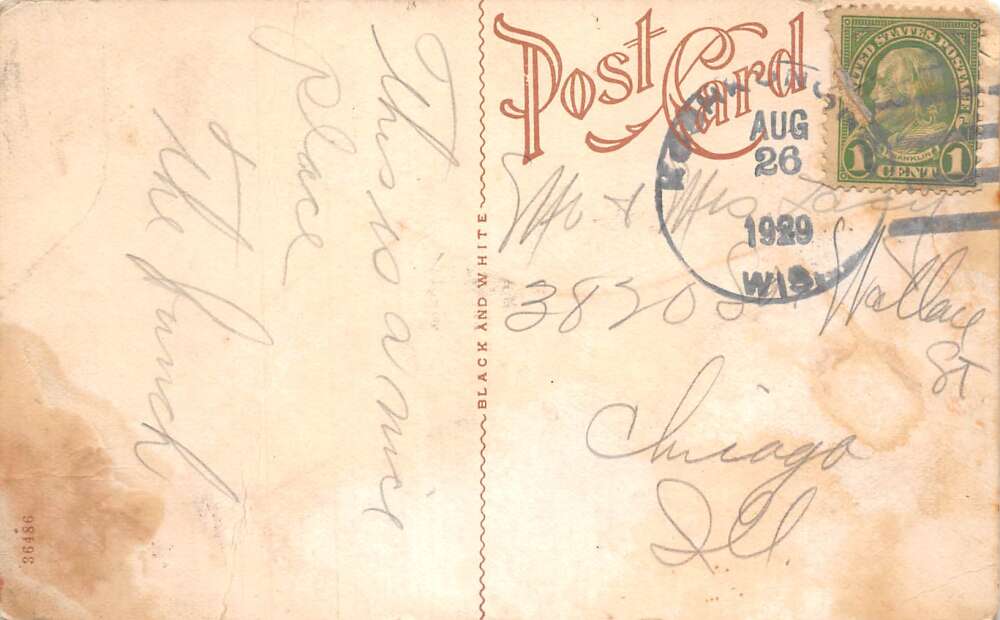 This is a nice
place
the bunch
Post Card
AUG
26
1929
WIS.
UNITED STATES POSTAGE
FRANKLIN
1 CENT 1
Mr & Mrs
3820 So Wallace
St
Chicago
Ill
BLACK AND WHITE
36486